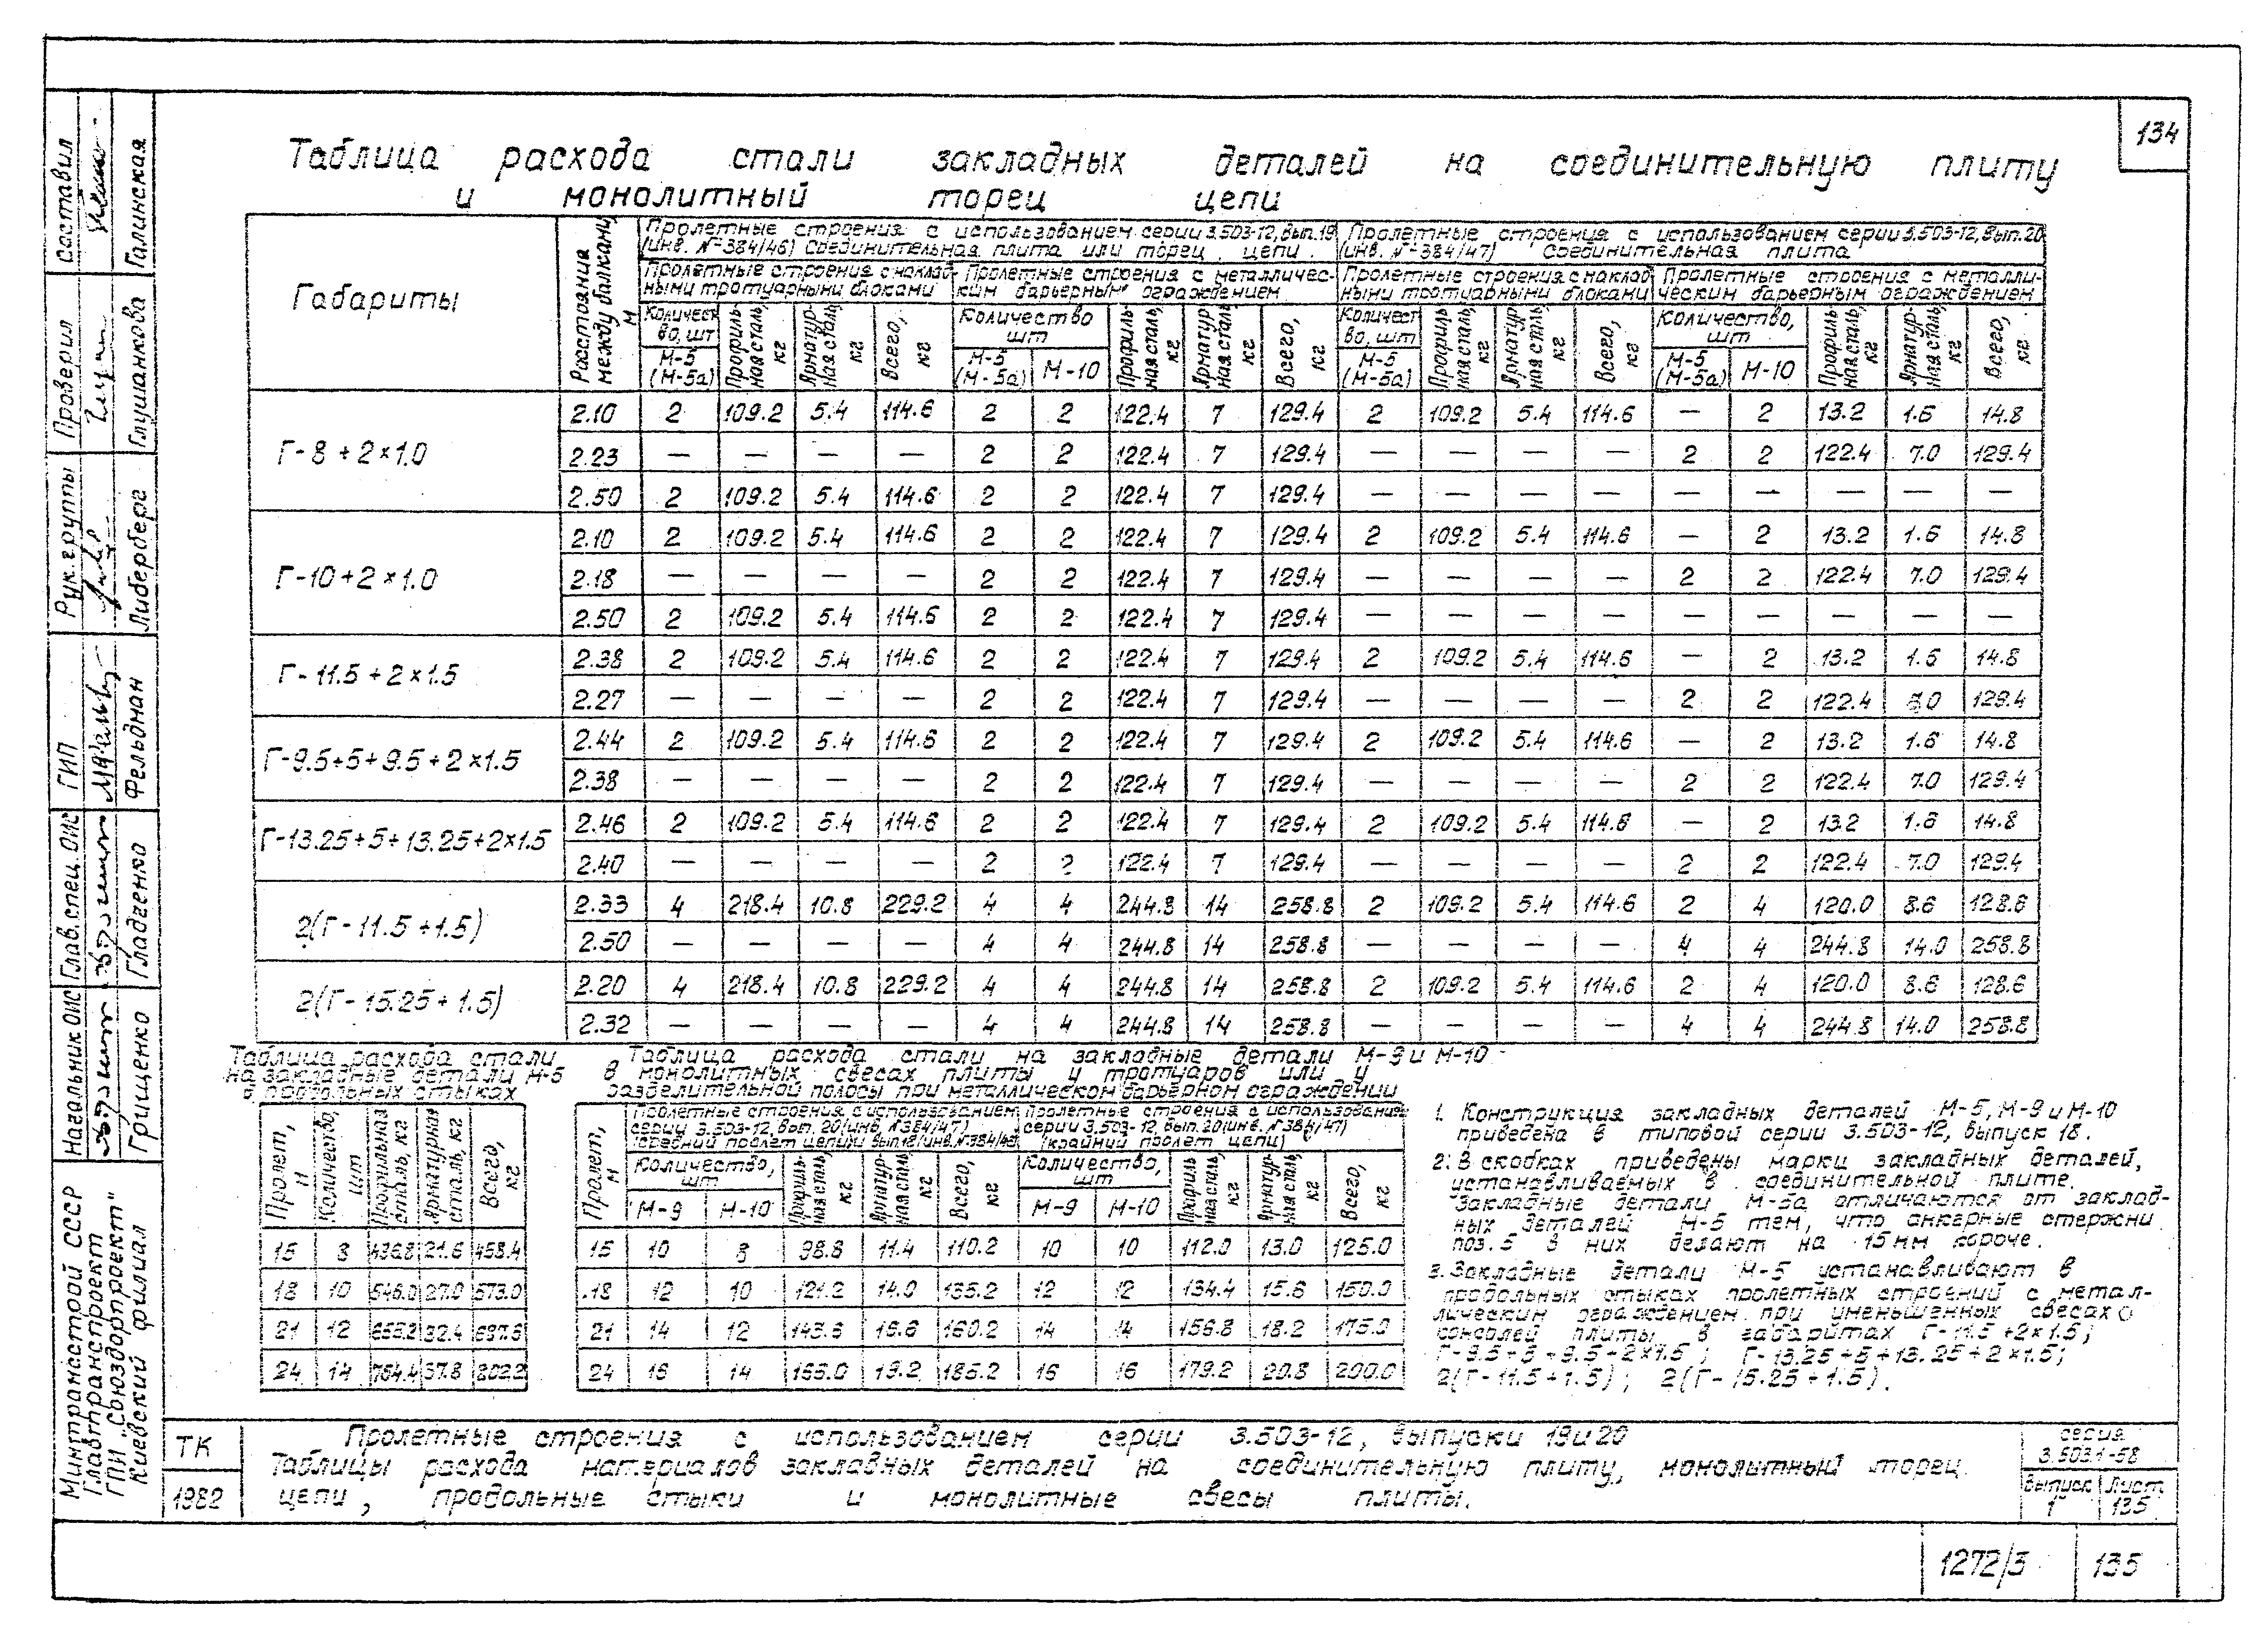 134
Таблица расхода стали закладных деталей на соединительную плиту
и монолитный торец цепи
Габариты
Расстояния между балками, м
Пролетные строения с использованием серии 3.503-12, вып. 19
(инв. №384/46) Соединительная плита или торец цепи.
Пролетные строения с использованием серии 3.503-12, вып. 20
(инв. №-384/47) Соединительная плита
Пролетные строения с наклад-
ными тротуарными блоками
Пролетные строения с металличес-
ким барьерным ограждением
Пролетные строения с наклад
ными тротуарными блоками
Пролетные строения с металли-
ческим барьерным ограждением
Количест во, шт М-5 (М-5а) Профиль- ная сталь, кг Арматур- ная сталь, кг Всего, кг
Количество шт М-5 (М-5а) М-10 Профиль- ная сталь, кг Арматур- ная сталь, кг Всего, кг
Количест во, шт М-5 (М-5а) Профиль- ная сталь, кг Арматур- ная сталь, кг Всего, кг
Количество, шт М-5 (М-5а) М-10 Профиль- ная сталь, кг Арматур- ная сталь, кг Всего, кг
Г-8+2×1.0
2.10 2 109.2 5.4 114.6 2 2 122.4 7 129.4 2 109.2 5.4 114.6 — 2 13.2 1.6 14.8
2.23 — — — — 2 2 122.4 7 129.4 — — — — 2 2 122.4 7.0 129.4
2.50 2 109.2 5.4 114.6 2 2 122.4 7 129.4 — — — — — — — — —
Г-10+2×1.0
2.10 2 109.2 5.4 114.6 2 2 122.4 7 129.4 2 109.2 5.4 114.6 — 2 13.2 1.6 14.8
2.18 — — — — 2 2 122.4 7 129.4 — — — — 2 2 122.4 7.0 129.4
2.50 2 109.2 5.4 114.6 2 2 122.4 7 129.4 — — — — — — — — —
Г-11.5+2×1.5
2.38 2 109.2 5.4 114.6 2 2 122.4 7 129.4 2 109.2 5.4 114.6 — 2 13.2 1.6 14.8
2.27 — — — — 2 2 122.4 7 129.4 — — — — 2 2 122.4 7.0 129.4
Г-9.5+5+9.5+2×1.5
2.44 2 109.2 5.4 114.6 2 2 122.4 7 129.4 2 109.2 5.4 114.6 — 2 13.2 1.6 14.8
2.38 — — — — 2 2 122.4 7 129.4 — — — — 2 2 122.4 7.0 129.4
Г-13.25+5+13.25+2×1.5
2.46 2 109.2 5.4 114.6 2 2 122.4 7 129.4 2 109.2 5.4 114.6 — 2 13.2 1.6 14.8
2.40 — — — — 2 2 122.4 7 129.4 — — — — 2 2 122.4 7.0 129.4
2(Г-11.5+1.5)
2.33 4 218.4 10.8 229.2 4 4 244.8 14 258.8 2 109.2 5.4 114.6 2 4 120.0 8.6 128.6
2.50 — — — — 4 4 244.8 14 258.8 — — — — 4 4 244.8 14.0 258.8
2(Г-15.25+1.5)
2.20 4 218.4 10.8 229.2 4 4 244.8 14 258.8 2 109.2 5.4 114.6 2 4 120.0 8.6 128.6
2.32 — — — — 4 4 244.8 14 258.8 — — — — 4 4 244.8 14.0 258.8
Таблица расхода стали
на закладные детали М-5
в продольных стыках
Пролет, м Количество, шт Профильная сталь, кг Арматурная сталь, кг Всего, кг
15 8 436.8 21.6 458.4
18 10 546.0 27.0 573.0
21 12 655.2 32.4 687.6
24 14 764.4 37.8 802.2
Таблица расхода стали на закладные детали М-9 и М-10
в монолитных свесах плиты у тротуаров или у
разделительной полосы при металлическом барьерном ограждении
Пролет, м
Пролетные строения с использованием
серии 3.503-12, вып. 20 (инв. №384/47)
(средний пролет цепи) и вып 18 (инв. №384/46)
Пролетные строения с использованием
серии 3.503-12, вып. 20 (инв. №384/47)
(крайний пролет цепи)
Количество, шт М-9 М-10 Профиль- ная сталь, кг Арматур- ная сталь, кг Всего, кг
Количество, шт М-9 М-10 Профиль ная сталь, кг Арматур- ная сталь, кг Всего, кг
15 10 8 98.8 11.4 110.2 10 10 112.0 13.0 125.0
18 12 10 121.2 14.0 135.2 12 12 134.4 15.6 150.0
21 14 12 143.6 16.6 160.2 14 14 156.8 18.2 175.0
24 16 14 166.0 19.2 185.2 16 16 179.2 20.8 200.0
1. Конструкция закладных деталей М-5, М-9 и М-10
приведена в типовой серии 3.503-12, выпуск 18.
2. В скобках приведены марки закладных деталей,
устанавливаемых в соединительной плите.
Закладные детали М-5а отличаются от заклад-
ных деталей М-5 тем, что анкерные стержни
поз. 5 в них делают на 15мм короче.
3. Закладные детали М-5 устанавливают в
продольных стыках пролетных строений с метал-
лическим ограждением при уменьшенных свесах
консолей плиты в габаритах Г-11.5+2×1.5;
Г-9.5+5+9.5+2×1.5; Г-13.25+5+13.25+2×1.5;
2(Г-11.5+1.5); 2(Г-15.25+1.5).
ТК
1982
Пролетные строения с использованием серии 3.503-12, выпуски 19 и 20
Таблицы расхода материалов закладных деталей на соединительную плиту, монолитный торец
цепи, продольные стыки и монолитные свесы плиты.
серия
3.503.1-58
Выпуск 1
Лист 135
1272/3
135
Составил Галинская
Проверил Глушанкова
Рук. группы Либерберг
ГИП Фельдман
Глав. спец. ОИС Гладченко
Начальник ОИС Грищенко
Минтрансстрой СССР
Главтранспроект
ГПИ "Союздорпроект"
Киевский филиал